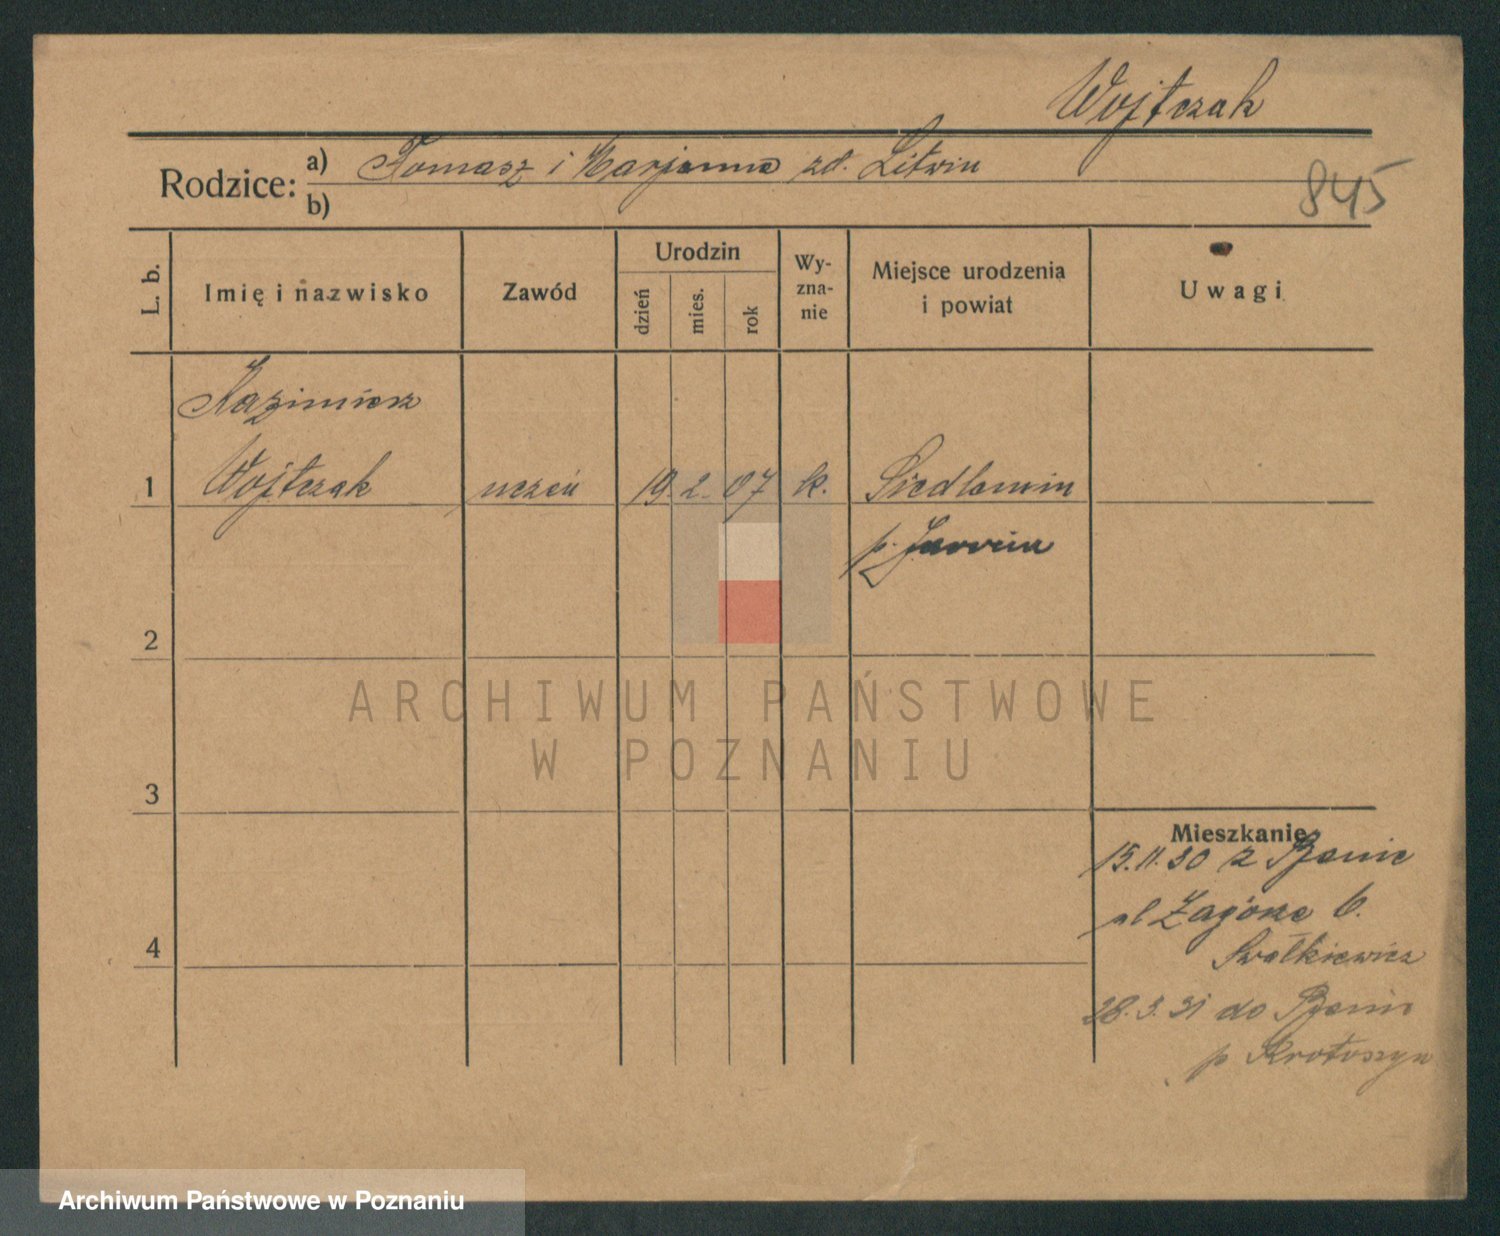 Wojtczak
Rodzice: a) Tomasz i Marjanna zd. Litwin
845
b)
L. b. Imię i nazwisko Zawód Urodzin dzień mies. rok Wy-zna-nie Miejsce urodzenia i powiat Uwagi
Kazimierz
1 Wojtczak uczeń 19. 2. 07 k. Siedlemin
p. Jarocin
2
ARCHIWUM PAŃSTWOWE
W POZNANIU
3
Mieszkanie
15.11.30 z Benic
ul Zagórze 6.
4
28.3.31 do Benic
p Krotoszyn
Archiwum Państwowe w Poznaniu